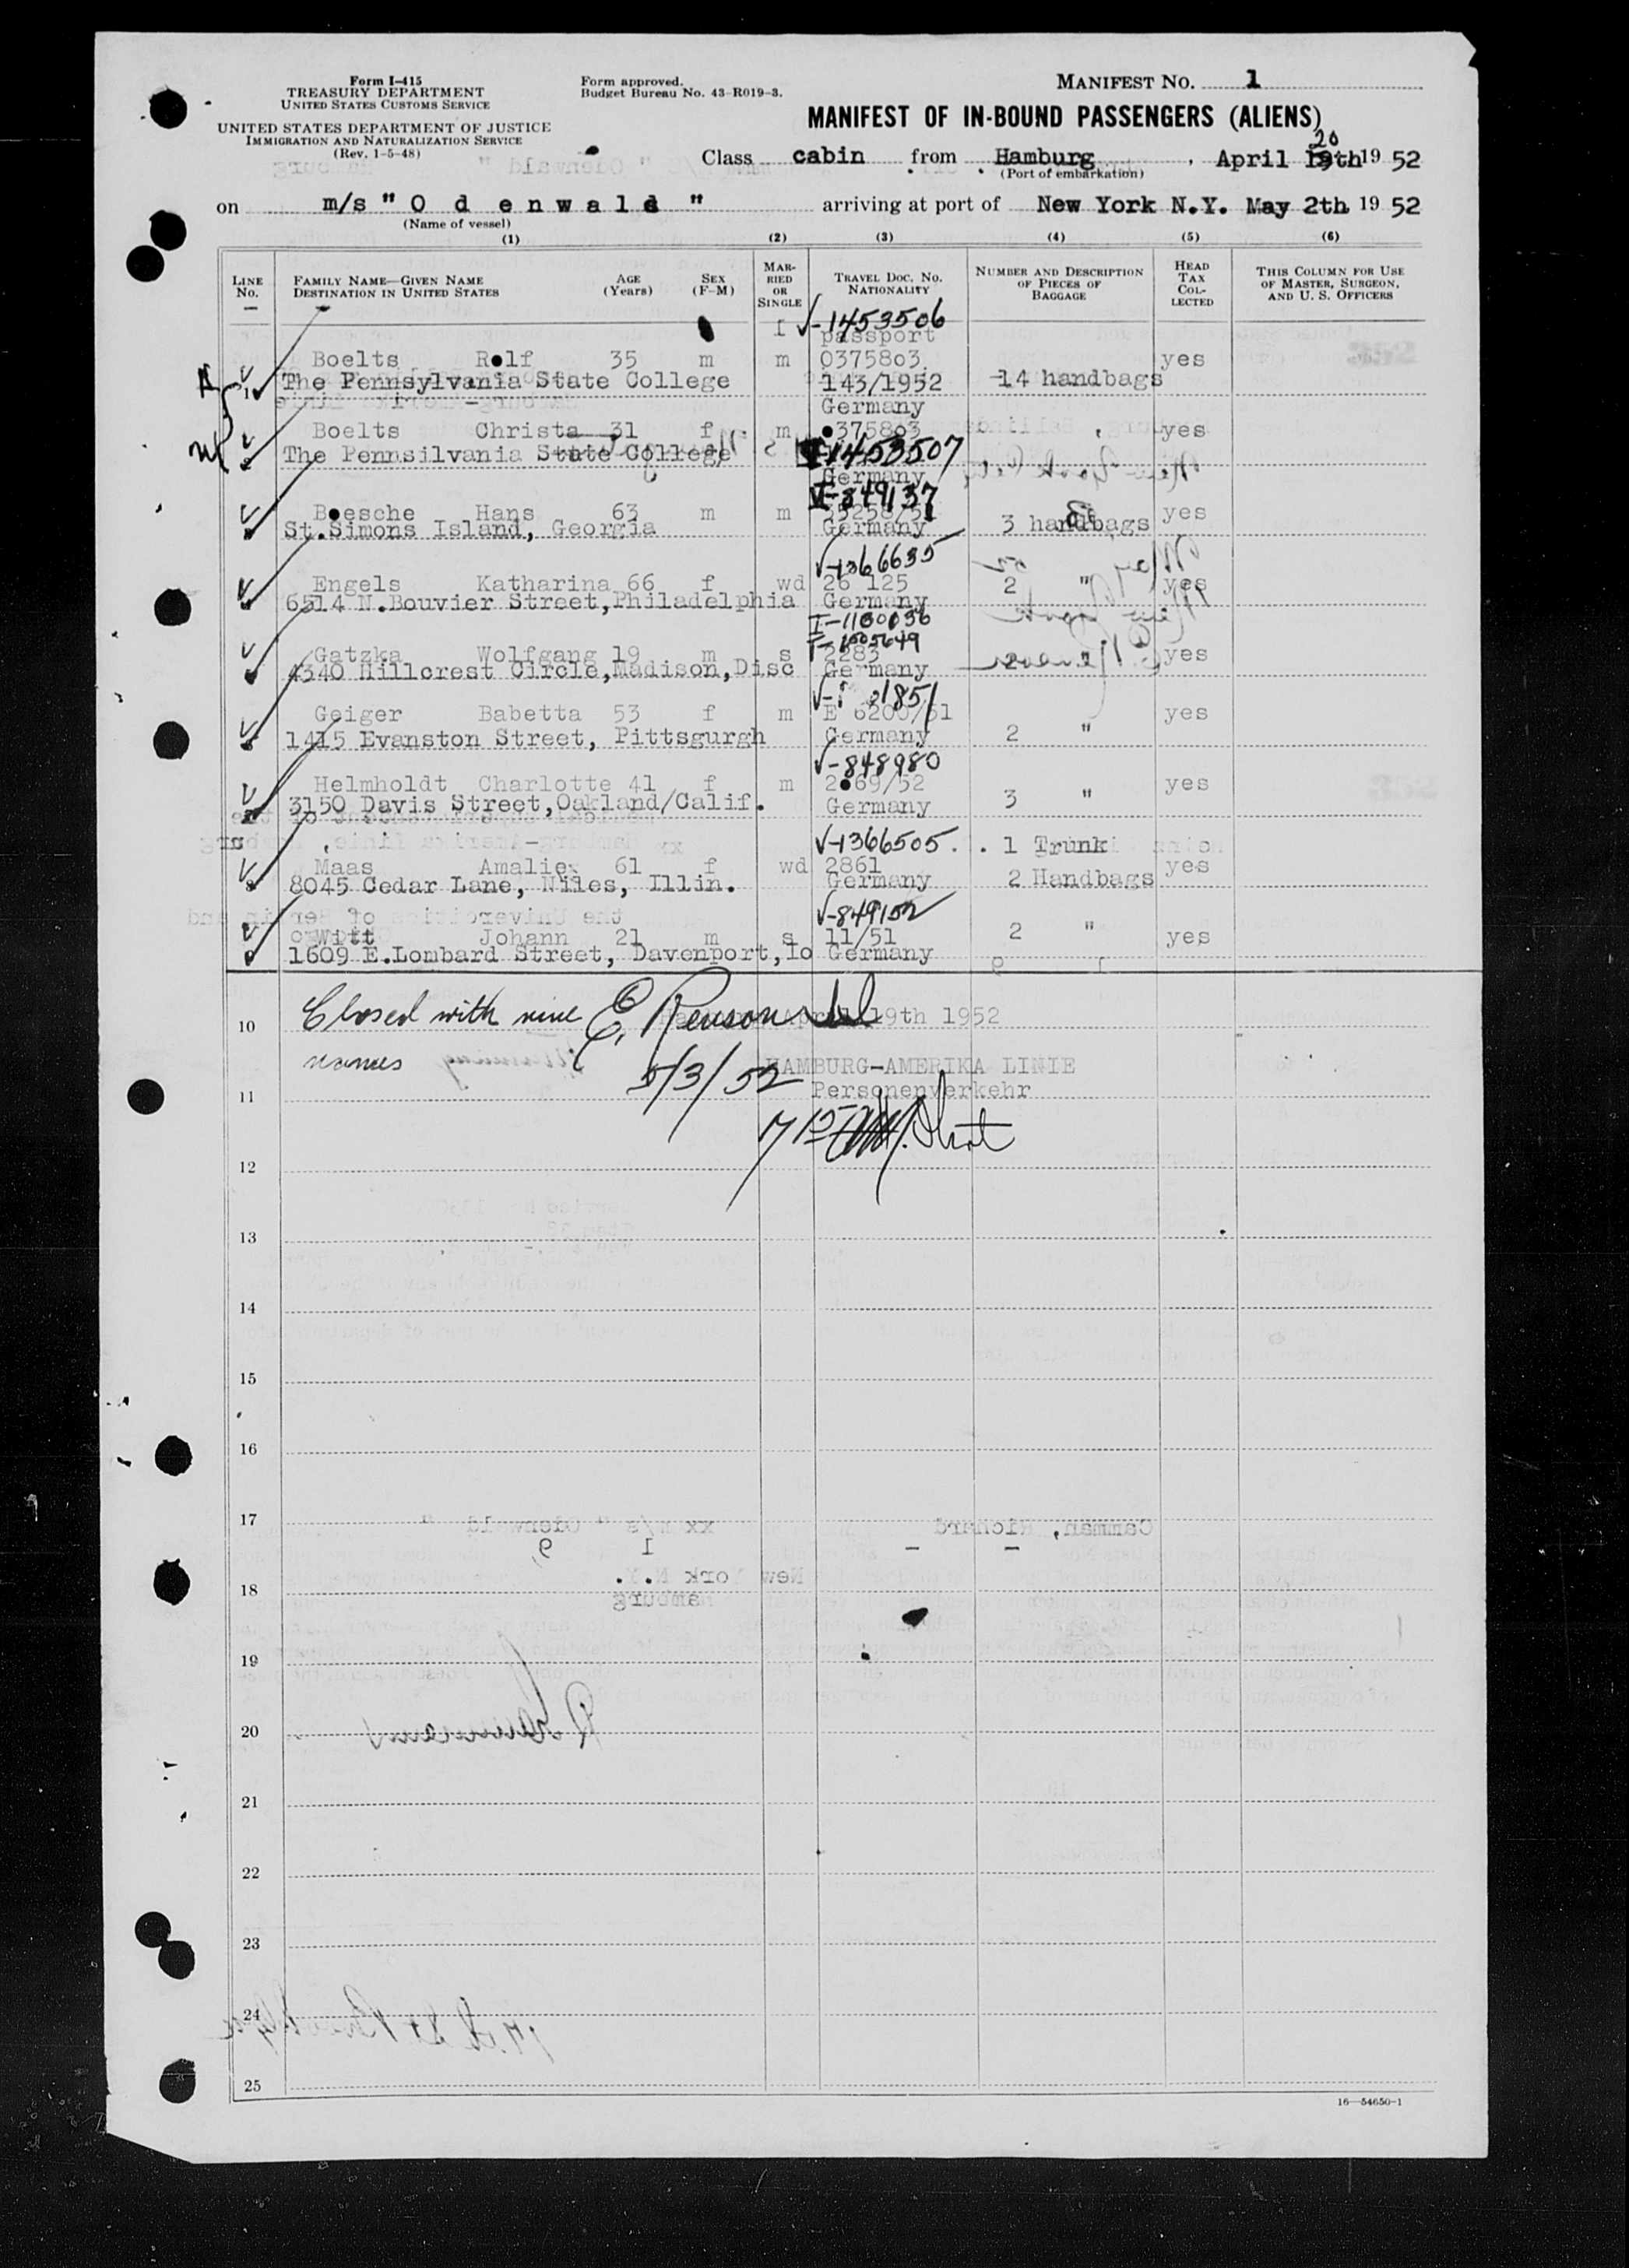 Form I-415
TREASURY DEPARTMENT
UNITED STATES CUSTOMS SERVICE
UNITED STATES DEPARTMENT OF JUSTICE
IMMIGRATION AND NATURALIZATION SERVICE
(Rev. 1-5-48)
Form approved.
Budget Bureau No. 43-R019-3.
MANIFEST NO. 1
MANIFEST OF IN-BOUND PASSENGERS (ALIENS)
20
Class cabin from Hamburg, April 19th 19 52
(Port of embarkation)
on m/s " O d e n w a l d " arriving at port of New York N.Y. May 2th 19 52
(Name of vessel)
(1) (2) (3) (4) (5) (6)
LINE NO.
FAMILY NAME—GIVEN NAME
DESTINATION IN UNITED STATES
AGE (Years)
SEX (F-M)
MARRIED OR SINGLE
TRAVEL DOC. NO. NATIONALITY
NUMBER AND DESCRIPTION OF PIECES OF BAGGAGE
HEAD TAX COLLECTED
THIS COLUMN FOR USE OF MASTER, SURGEON, AND U. S. OFFICERS
V-1453506
passport
Boelts Rolf 35 m m 0375803 yes
1 The Pennsylvania State College 143/1952 14 handbags
Germany
Boelts Christa 31 f m 0375803 " yes
The Pennsilvania State College 1453507
Germany
V-849137
Boesche Hans 63 m m yes
St.Simons Island, Georgia Germany 3 handbags
V-1366635
Engels Katharina 66 f wd 26 125 2 " yes
6514 N.Bouvier Street,Philadelphia Germany
I-1100036
Gatzka Wolfgang 19 m s 2283 2 yes
4340 Hillcrest Circle,Madison,Disc Germany
Geiger Babetta 53 f m E 6200/51 yes
1415 Evanston Street, Pittsgurgh Germany 2 "
V-848980
Helmholdt Charlotte 41 f m 2069/52 yes
3150 Davis Street,Oakland/Calif. Germany 3 "
V-1366505. 1 Trunk
Maas Amalie 61 f wd 2861 yes
8045 Cedar Lane, Niles, Illin. Germany 2 Handbags
V-849152
Witt Johann 21 m s 11/51 2 " yes
9 1609 E.Lombard Street, Davenport,Io Germany
10 Closed with nine April 19th 1952
names
5/3/52
HAMBURG-AMERIKA LINIE
11 Personenverkehr
12
13
14
15
16
17
18
19
20
21
22
23
24
25
16—54650-1